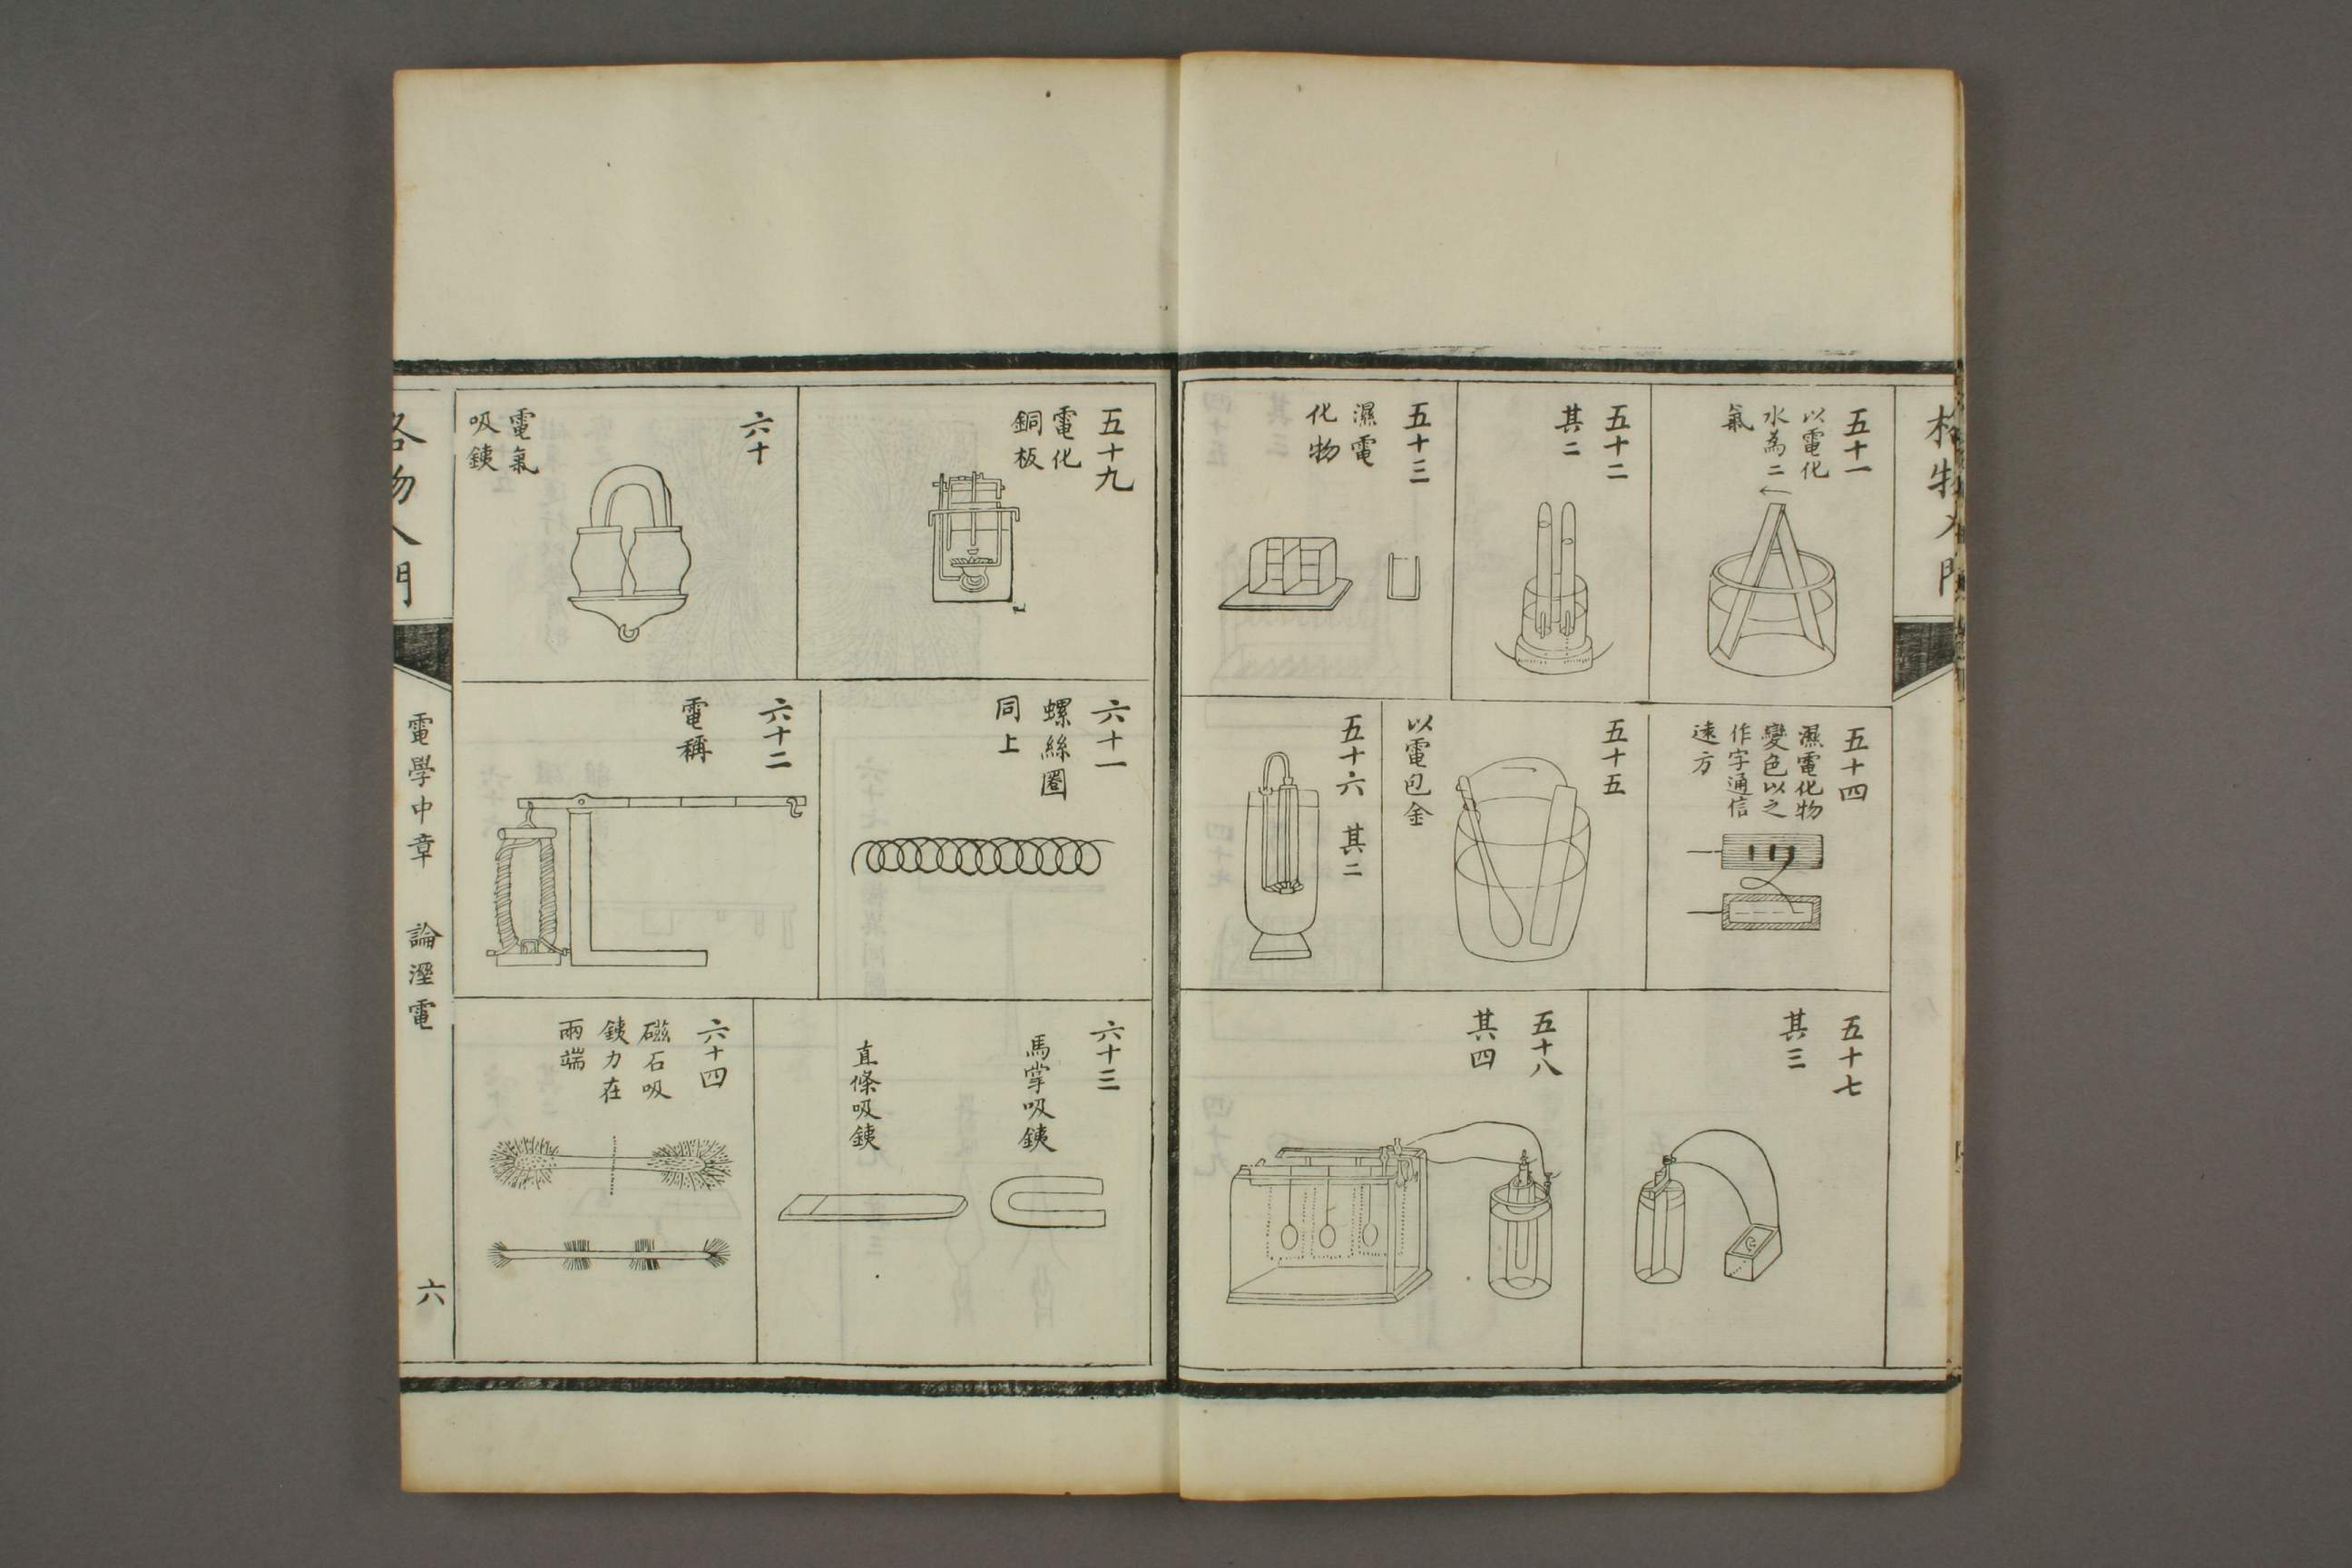 格物入門
五十一
以電化
水為二
氣
五十二
其二
五十三
濕電
化物
五十四
濕電化物
變色以之
作字通信
遠方
五十五
以電包金
五十六 其二
五十七
其三
五十八
其四
五十九
電化
銅板
六十
電氣
吸鉄
六十一
螺絲圈
同上
六十二
電稱
六十三
馬掌吸鉄
直條吸鉄
六十四
磁石吸
鉄力在
兩端
格物入門
電學中章 論溼電
六